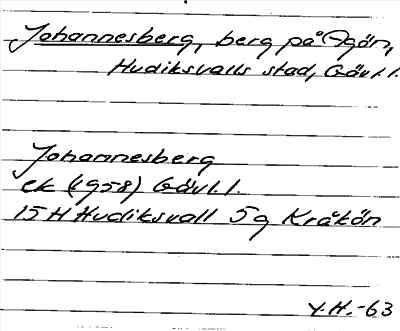 Johannesberg, berg på Agön,
Hudiksvalls stad, Gävl.l.
Johannesberg
ek (1958) Gävl.l.
15H Hudiksvall 5g Kråkön
Y.H.-63